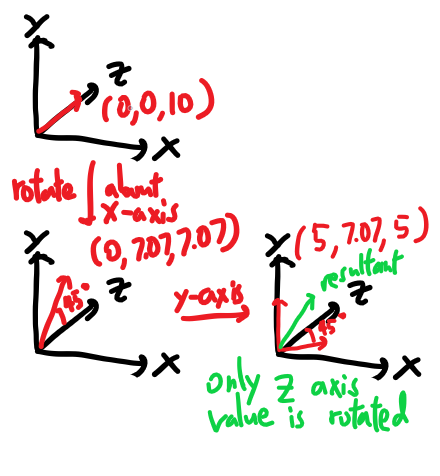 Y
Z
(0,0,10)
X
rotate about
X-axis
Y
(0,7.07,7.07)
45°
Z
X
y-axis
Y
(5,7.07,5)
resultant
Z
45°
X
only Z axis
value is rotated